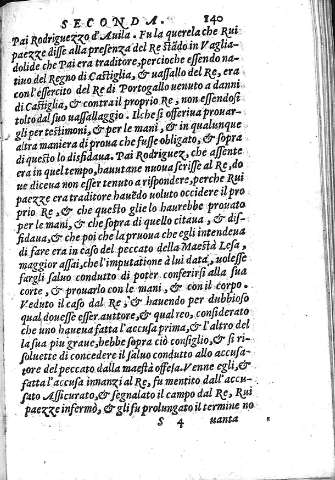 SECONDA. 140
Pai Rodriguezzo d'Auila. Fu la querela che Rui
paezze disse alla presenza del Re stãdo in Vaglia-
dolide che Pai era traditore, percioche essendo na-
tiuo del Regno di Castiglia, & uassallo del Re, era
con l'essercito del Re di Portogallo uenuto a danni
di Castiglia, & contra il proprio Re, non essendosi
tolto dal suo uassallaggio. Ilche si offeriua prouar-
gli per testimoni, & per le mani, & in qualunque
altra maniera di proua che fusse obligato, & sopra
di questo lo disfidaua. Pai Rodriguez, che assente
era in quel tempo, hauutane nuoua scrisse al Re, do
ue diceua non esser tenuto a rispondere, perche Rui
paezze era traditore hauẽdo uoluto occidere il pro
prio Re, & che questo glie lo haurebbe prouato
per le mani, & che sopra di quello citaua, & dis-
fidaua, & che poi che la pruoua che egli intendeua
di fare era in caso del peccato della Maestà Lesa,
maggior assai, che l'imputatione à lui data, uolesse
fargli saluo condutto di poter conferirsi alla sua
corte, & prouarlo con le mani, & con il corpo.
Veduto il caso dal Re, & hauendo per dubbioso
qual douesse esser auttore, & qual reo, considerato
che uno haueua fatta l'accusa prima, & l'altro del
la sua piu graue, hebbe sopra ciò consiglio, & si ri-
soluette di concedere il saluo condutto allo accusa-
tore del peccato dalla maestà offesa. Venne egli, &
fatta l'accusa innanzi al Re, fu mentito dall'accu-
sato Assicurato, & segnalato il campo dal Re, Rui
paezze infermò, & gli fu prolungato il termine no
S 4 uanta